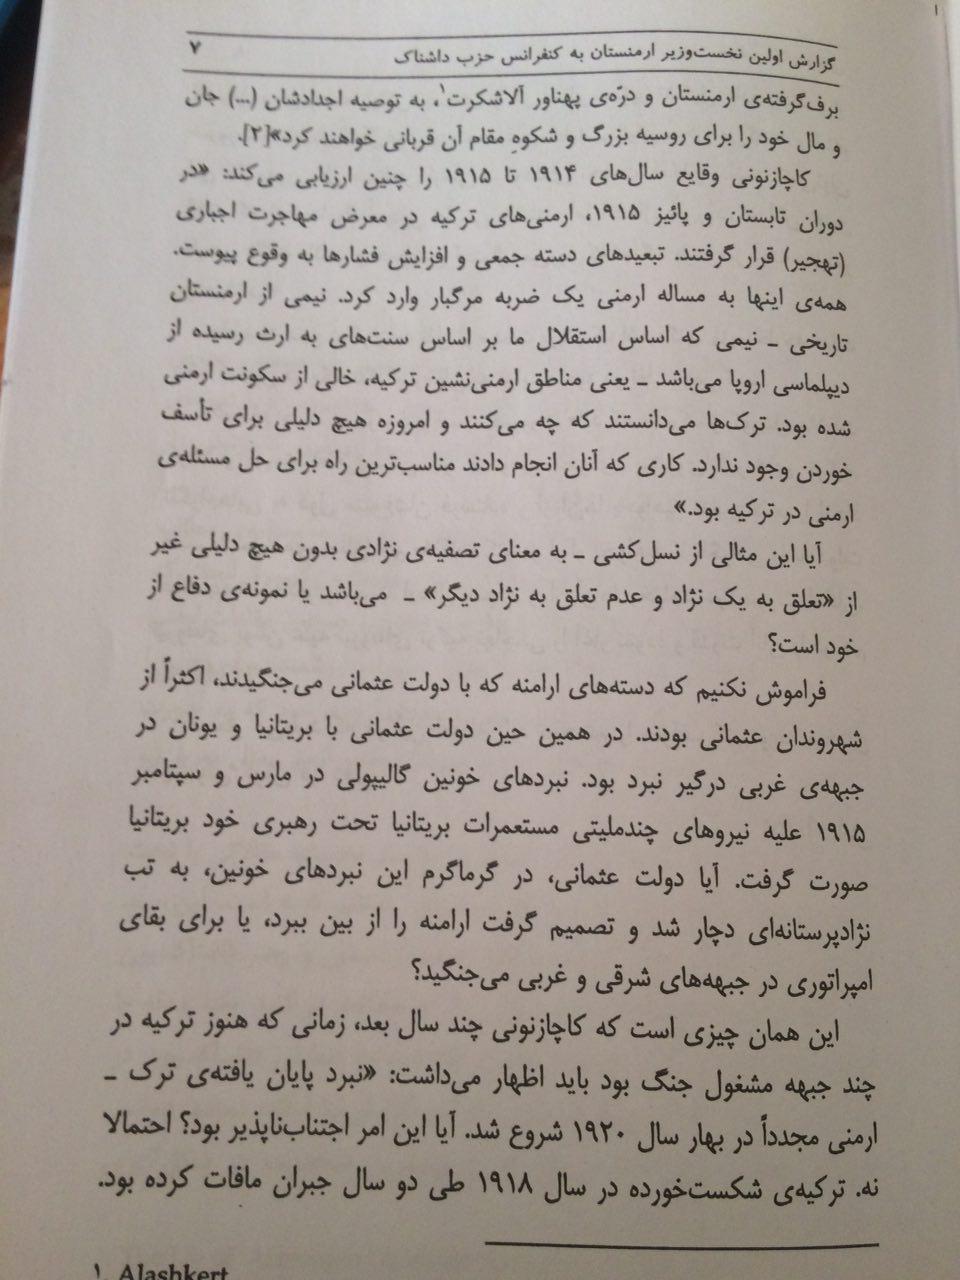 گزارش اولین نخست‌وزیر ارمنستان به کنفرانس حزب داشناک ۷
برف‌گرفته‌ی ارمنستان و درّه‌ی پهناور آلاشکرت۱، به توصیه اجدادشان (...) جان
و مال خود را برای روسیه بزرگ و شکوهِ مقام آن قربانی خواهند کرد»[۲].
کاچازنونی وقایع سال‌های ۱۹۱۴ تا ۱۹۱۵ را چنین ارزیابی می‌کند: «در
دوران تابستان و پائیز ۱۹۱۵، ارمنی‌های ترکیه در معرض مهاجرت اجباری
(تهجیر) قرار گرفتند. تبعیدهای دسته جمعی و افزایش فشارها به وقوع پیوست.
همه‌ی اینها به مساله ارمنی یک ضربه مرگبار وارد کرد. نیمی از ارمنستان
تاریخی ـ نیمی که اساس استقلال ما بر اساس سنت‌های به ارث رسیده از
دیپلماسی اروپا می‌باشد ـ یعنی مناطق ارمنی‌نشین ترکیه، خالی از سکونت ارمنی
شده بود. ترک‌ها می‌دانستند که چه می‌کنند و امروزه هیچ دلیلی برای تأسف
خوردن وجود ندارد. کاری که آنان انجام دادند مناسب‌ترین راه برای حل مسئله‌ی
ارمنی در ترکیه بود.»
آیا این مثالی از نسل‌کشی ـ به معنای تصفیه‌ی نژادی بدون هیچ دلیلی غیر
از «تعلق به یک نژاد و عدم تعلق به نژاد دیگر» ـ می‌باشد یا نمونه‌ی دفاع از
خود است؟
فراموش نکنیم که دسته‌های ارامنه که با دولت عثمانی می‌جنگیدند، اکثراً از
شهروندان عثمانی بودند. در همین حین دولت عثمانی با بریتانیا و یونان در
جبهه‌ی غربی درگیر نبرد بود. نبردهای خونین گالیپولی در مارس و سپتامبر
۱۹۱۵ علیه نیروهای چندملیتی مستعمرات بریتانیا تحت رهبری خود بریتانیا
صورت گرفت. آیا دولت عثمانی، در گرماگرم این نبردهای خونین، به تب
نژادپرستانه‌ای دچار شد و تصمیم گرفت ارامنه را از بین ببرد، یا برای بقای
امپراتوری در جبهه‌های شرقی و غربی می‌جنگید؟
این همان چیزی است که کاچازنونی چند سال بعد، زمانی که هنوز ترکیه در
چند جبهه مشغول جنگ بود باید اظهار می‌داشت: «نبرد پایان یافته‌ی ترک ـ
ارمنی مجدداً در بهار سال ۱۹۲۰ شروع شد. آیا این امر اجتناب‌ناپذیر بود؟ احتمالا
نه. ترکیه‌ی شکست‌خورده در سال ۱۹۱۸ طی دو سال جبران مافات کرده بود.
۱. Alashkert